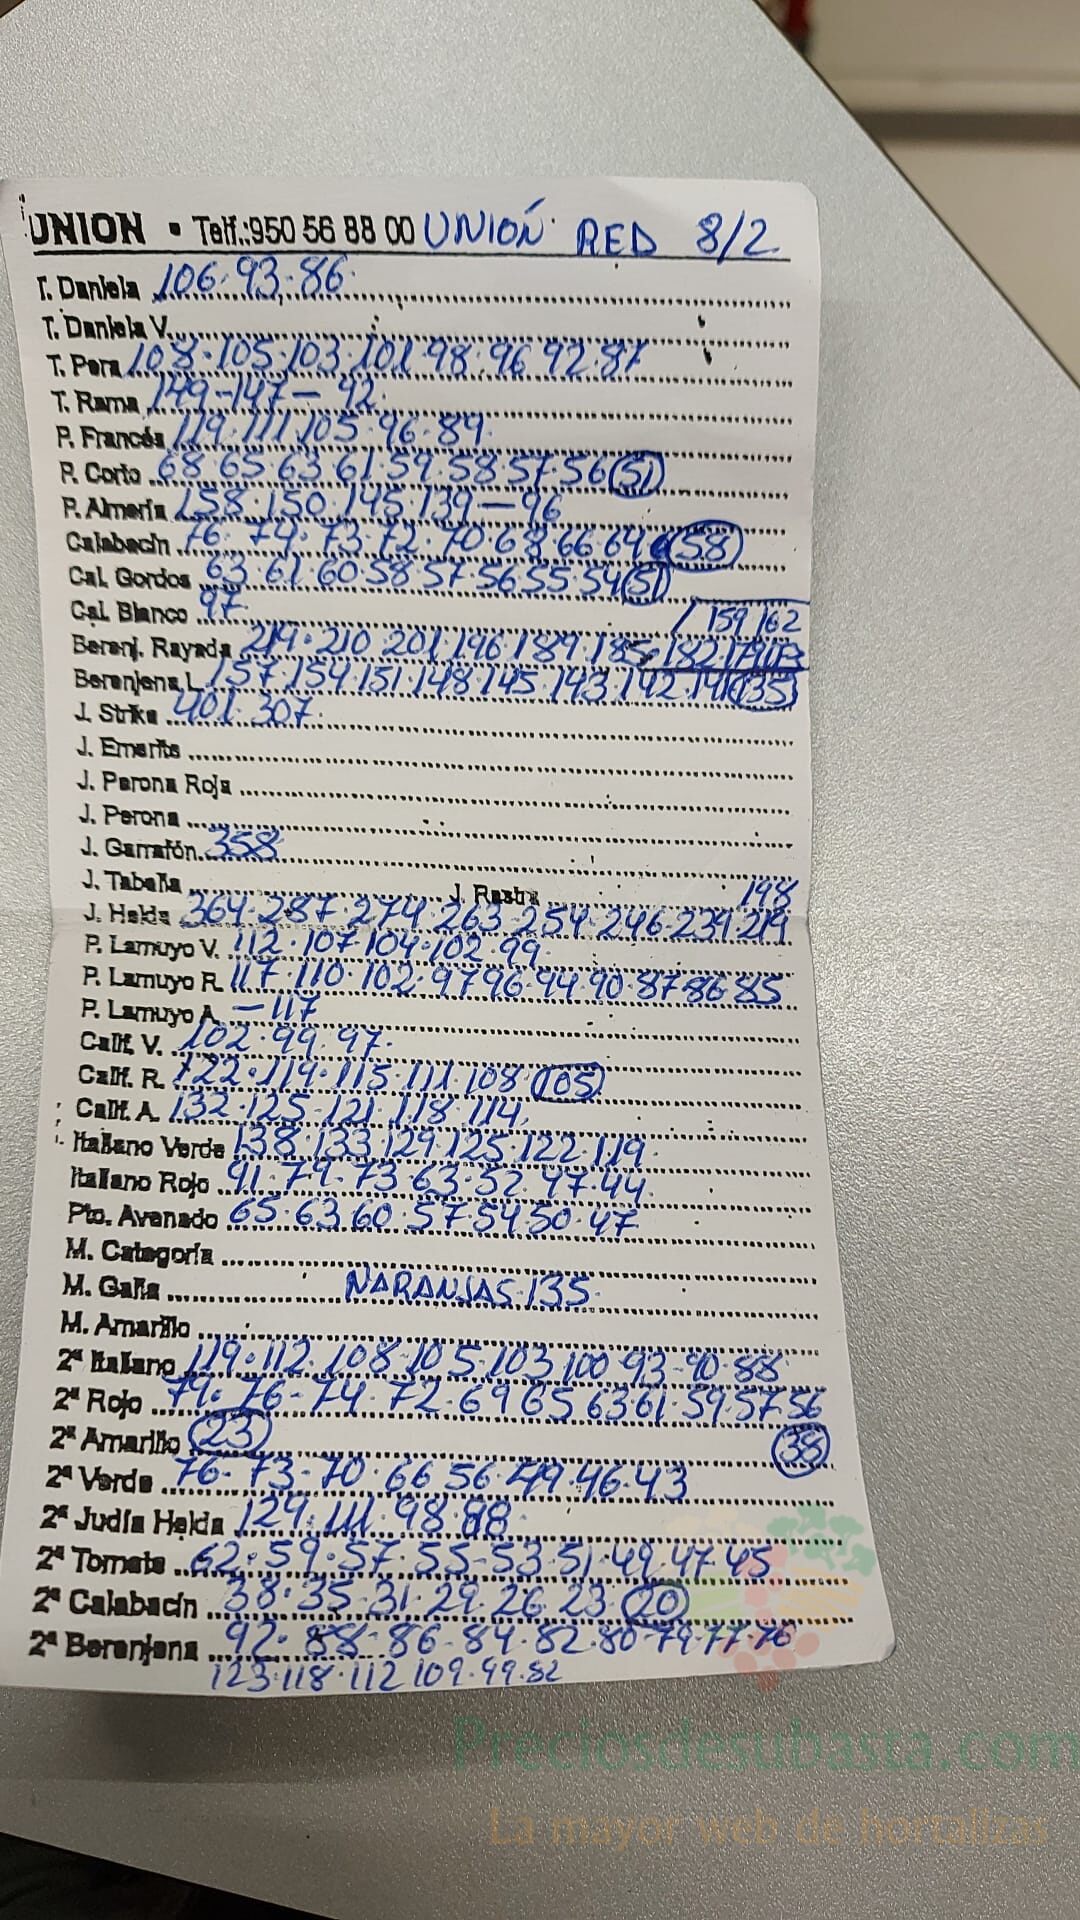 UNION • Telf.:950 56 88 00 UNIÓN RED 8/2
T. Daniela 106·93·86·
T. Daniela V.
T. Pera 108·105·103·101·98·96 92·87
T. Rama 149-147-92·
P. Francés 119·111·105·96·89·
P. Corto 68·65·63·61·59·58·57·56 (51)
P. Almería 158·150·145·139-96
Calabacín 76·74·73·72·70·68·66 64 (58)
Cal. Gordos 63·61·60·58·57·56 55·54 (51)
Cal. Blanco 97· 159 162
Berenj. Rayada 219·210 201·196·189·185 182 179
Berenjena L. 157·154·151·148·145·143·142·141 (135)
J. Strike 401·307·
J. Emerite
J. Perona Roja
J. Perona
J. Garrafón 358
J. Tabella J. Rastra 198
J. Helda 364·287·274·263·254·246·239·219
P. Lamuyo V. 112·107 104·102·99·
P. Lamuyo R. 117·110·102·97 96·94·90·87 86·85
P. Lamuyo A. -117
Calif. V. 102·99·97·
Calif. R. 122·119·115·111·108 (105)
Calif. A. 132·125-121·118·114
Italiano Verde 138·133·129·125·122·119·
Italiano Rojo 91·79·73·63·52·47·44
Pto. Avanado 65·63 60·57 54 50·47
M. Categoría
M. Galia NARANJAS·135·
M. Amarillo
2ª Italiano 119·112·108·105·103 100 93-90·88
2ª Rojo 79·76-74·72·69 65 63 61·59·57·56
2ª Amarillo (23) (38)
2ª Verde 76-73-70·66 56·49·46·43
2ª Judía Helda 129·111·98·88
2ª Tomate 62·59·57·55-53·51·49·47·45
2ª Calabacín 38·35·31·29·26·23·(20)
2ª Berenjena 92·88-86-84·82·80·79·77·76
123·118·112 109·99·82
Preciosdesubasta.com
La mayor web de hortalizas